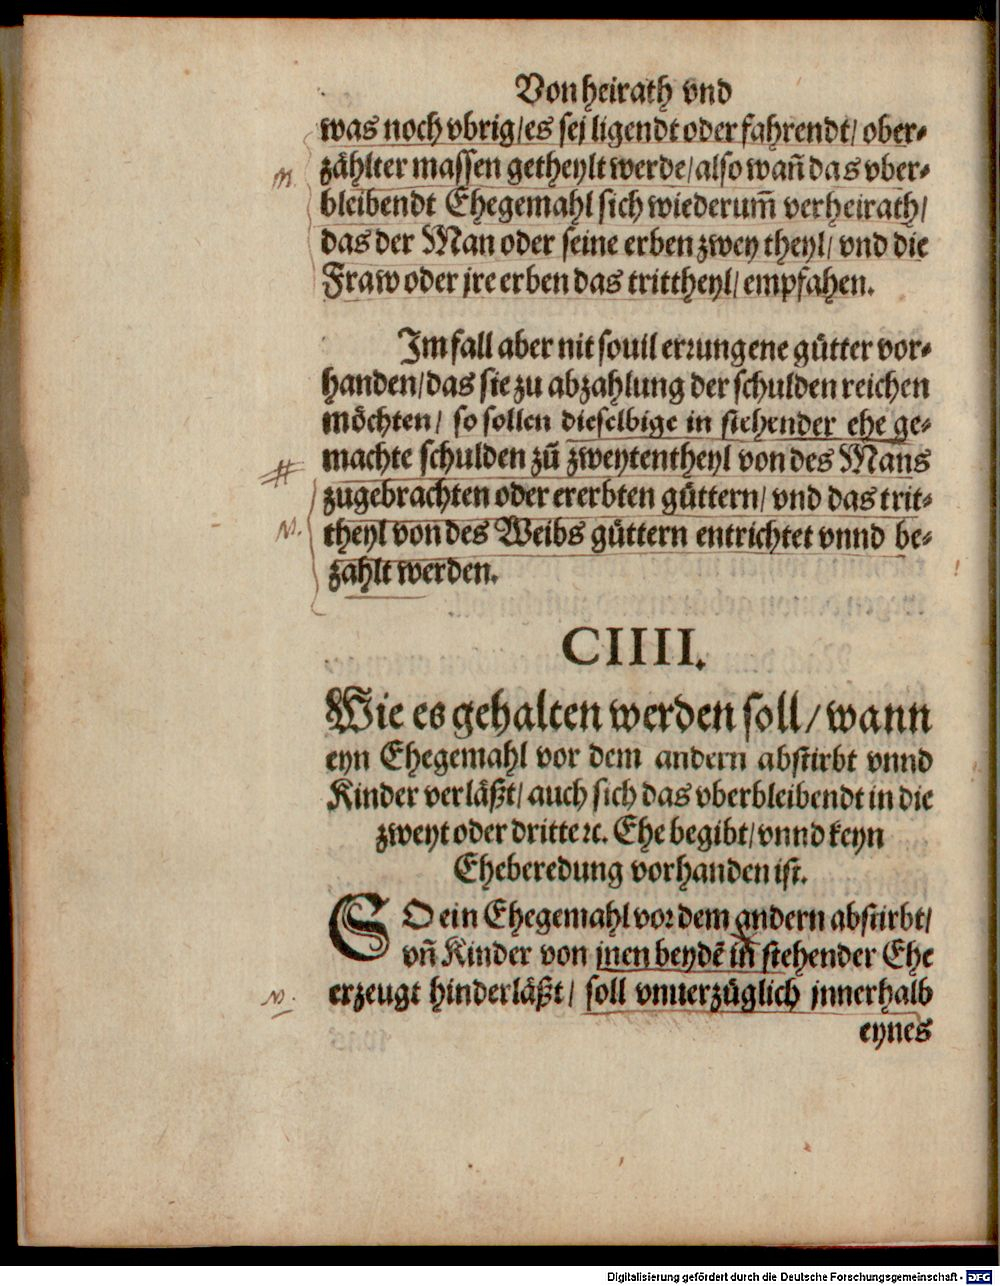 Von heirath vnd
was noch vbrig/es sej ligendt oder fahrendt/ ober-
zählter massen getheylt werde/also wañ das vber-
bleibendt Ehegemahl sich wiederum̃ verheirath/
das der Man oder seine erben zwey theyl/ vnd die
Fraw oder jre erben das trittheyl/ empfahen.
Im fall aber nit souil errungene gütter vor-
handen/das sie zu abzahlung der schulden reichen
möchten/ so sollen dieselbige in stehender ehe ge-
machte schulden zũ zweytentheyl von des Mans
zugebrachten oder ererbten güttern/ vnd das trit-
theyl von des Weibs güttern entrichtet vnnd be-
zahlt werden.
CIIII.
Wie es gehalten werden soll/ wann
eyn Ehegemahl vor dem andern abstirbt vnnd
Kinder verläßt/ auch sich das vberbleibendt in die
zweyt oder dritte ꝛc. Ehe begibt/ vnnd keyn
Eheberedung vorhanden ist.
SO ein Ehegemahl vor dem andern abstirbt/
vñ Kinder von jnen beydẽ in stehender Ehe
erzeugt hinderläßt/ soll vnuerzüglich jnnerhalb
eynes
Digitalisierung gefördert durch die Deutsche Forschungsgemeinschaft - DFG